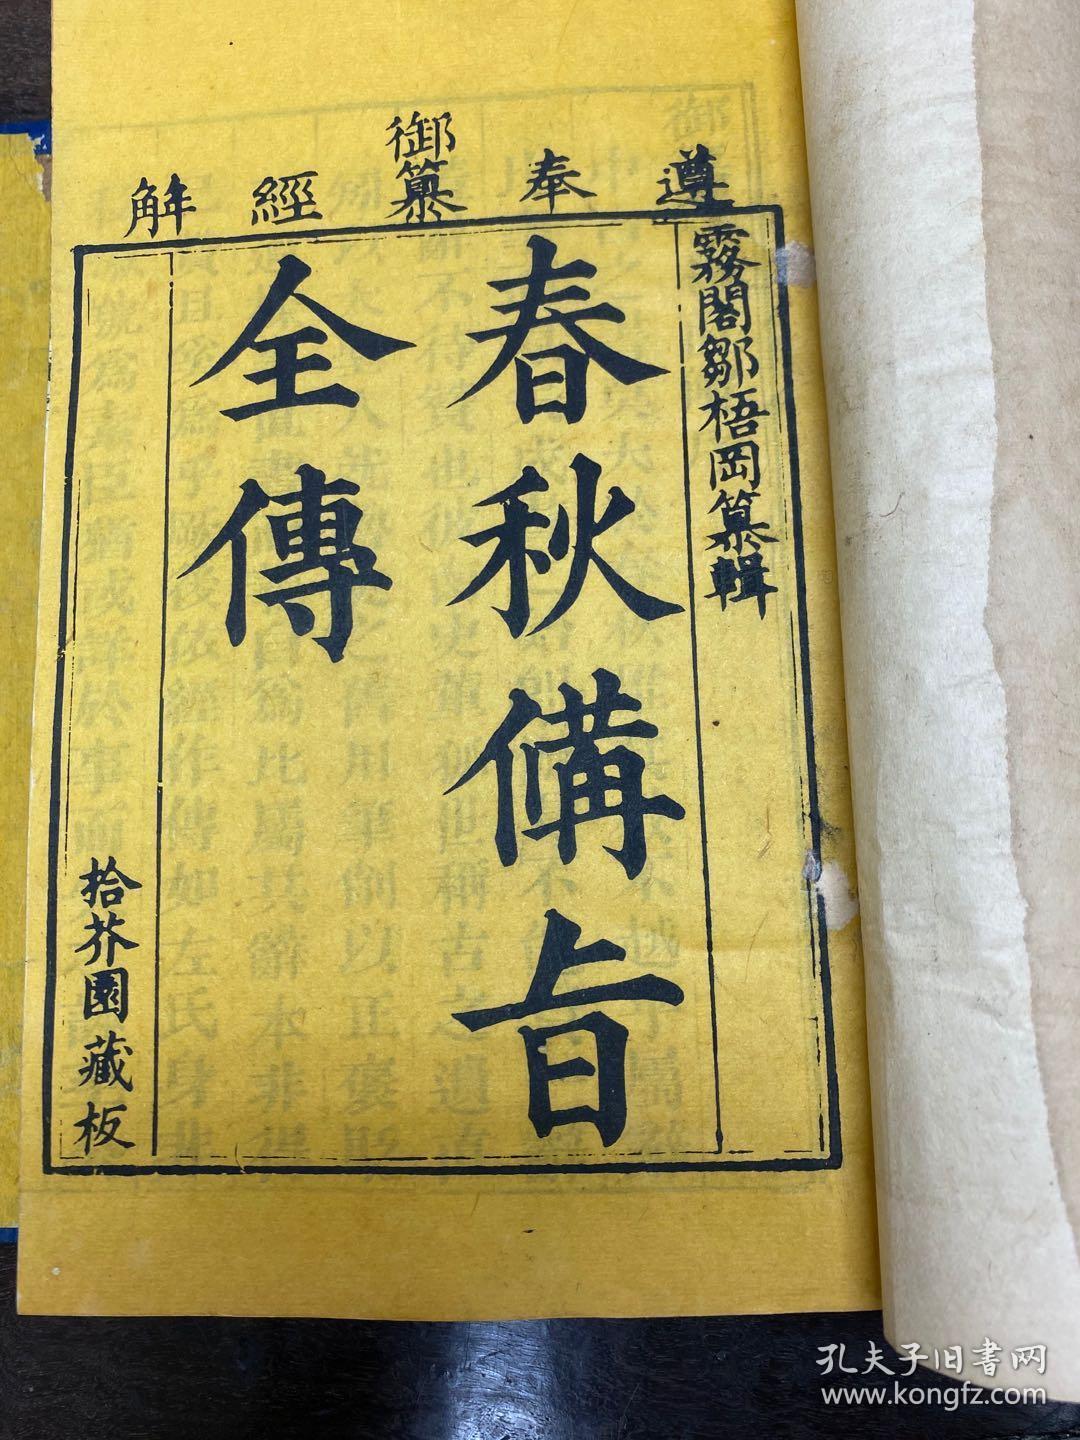 遵奉御纂經解
霧閣鄒梧岡纂輯
春秋備旨
全傳
拾芥園藏板
孔夫子旧書网
www.kongfz.com